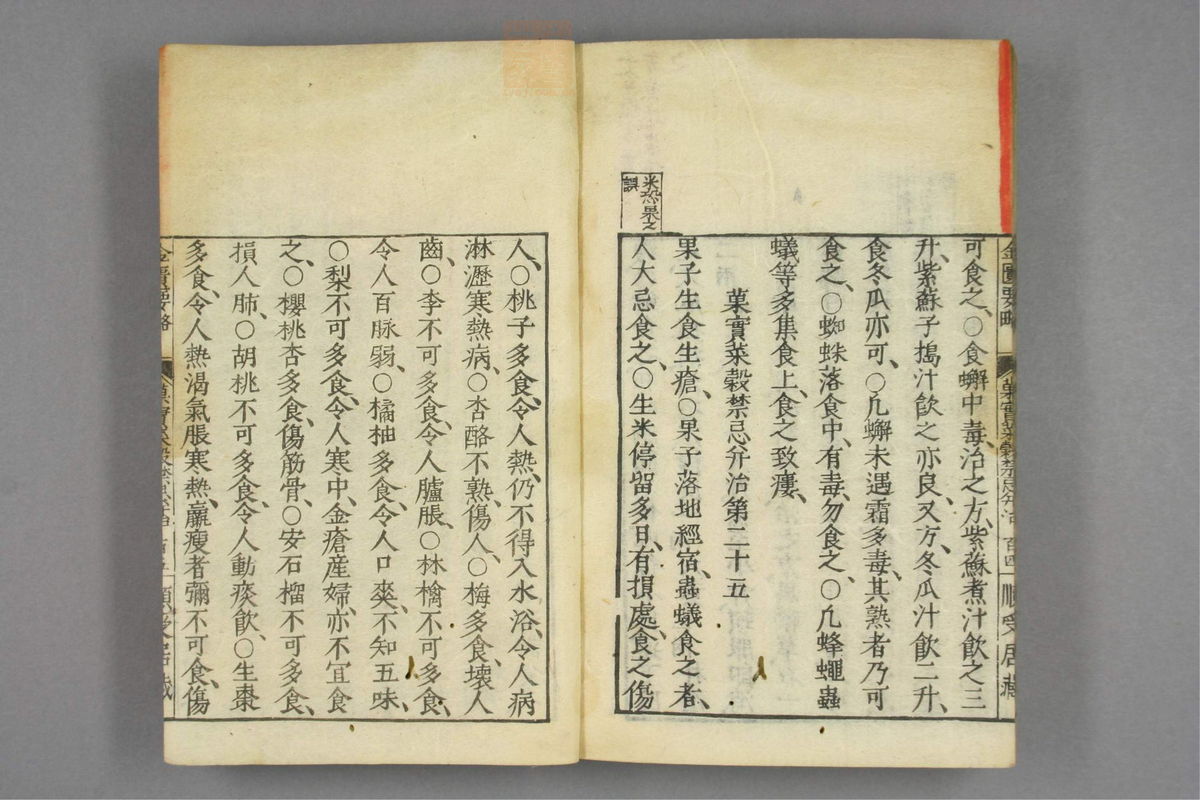 金匱要略 菓實菜穀禁忌并治 百四 順受居藏
可食之、○食蠏中毒、治之方、紫蘇煮汁飲之三
升、紫蘇子搗汁飲之亦良、又方、冬瓜汁飲二升、
食冬瓜亦可、○凢蠏未遇霜多毒、其熟者乃可
食之、○蜘蛛落食中、有毒、勿食之、○凢蜂蠅蟲
蟻等多集食上、食之致瘻、
菓實菜穀禁忌并治第二十五
果子生食生瘡、○果子落地經宿、蟲蟻食之者、
米恐果之
誤
人大忌食之、○生米停留多日、有損處、食之傷
人、○桃子多食、令人熱、仍不得入水浴、令人病
淋瀝寒熱病、○杏酪不熟、傷人、○梅多食、壞人
齒、○李不可多食、令人臚脹、○林檎不可多食、
令人百脉弱、○橘柚多食、令人口爽、不知五味、
○梨不可多食、令人寒中、金瘡産婦、亦不宜食
之、○櫻桃杏多食、傷筋骨、○安石榴不可多食、
損人肺、○胡桃不可多食、令人動痰飲、○生棗
多食、令人熱渴氣脹、寒熱、羸瘦者彌不可食、傷
金匱要略